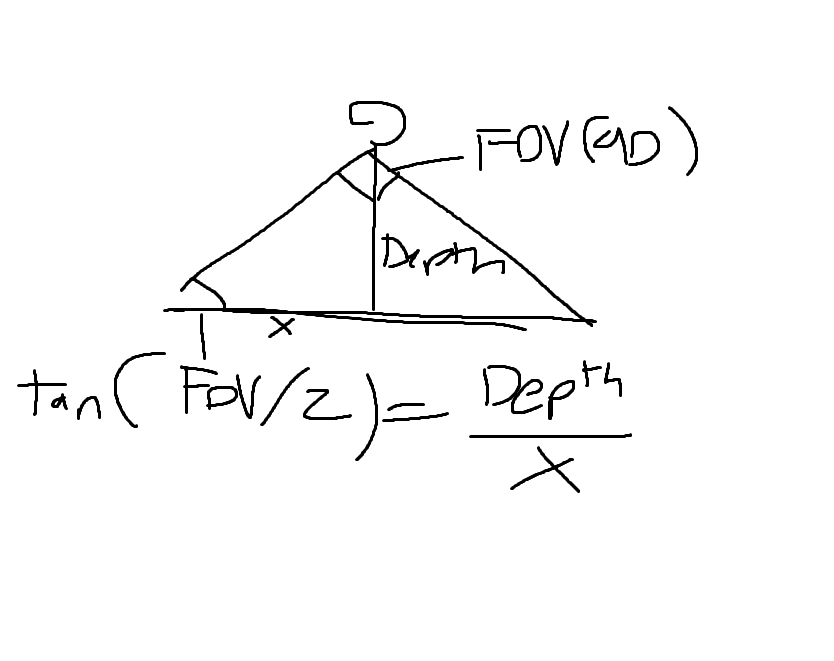 FOV (90)
Depth
x
tan(FOV/2) = Depth
x